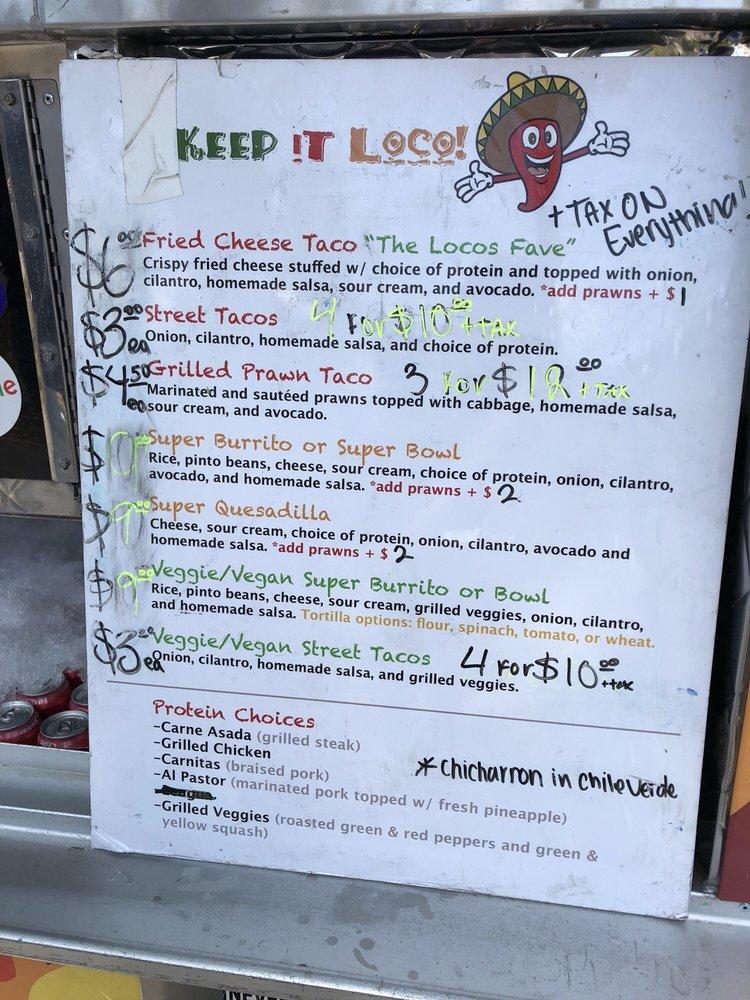 KEEP IT LOCO!
+ TAX ON
Everything!
$6.00 Fried Cheese Taco "The Locos Fave"
Crispy fried cheese stuffed w/ choice of protein and topped with onion,
cilantro, homemade salsa, sour cream, and avocado. *add prawns + $1
$3.00 ea Street Tacos 4 For $10.00 + TAX
Onion, cilantro, homemade salsa, and choice of protein.
$4.50 ea Grilled Prawn Taco 3 for $12.00 + TAX
Marinated and sautéed prawns topped with cabbage, homemade salsa,
sour cream, and avocado.
Super Burrito or Super Bowl
Rice, pinto beans, cheese, sour cream, choice of protein, onion, cilantro,
avocado, and homemade salsa. *add prawns + $2
$9.00 Super Quesadilla
Cheese, sour cream, choice of protein, onion, cilantro, avocado and
homemade salsa. *add prawns + $2
$9.00 Veggie/Vegan Super Burrito or Bowl
Rice, pinto beans, cheese, sour cream, grilled veggies, onion, cilantro,
and homemade salsa. Tortilla options: flour, spinach, tomato, or wheat.
$3.00 ea Veggie/Vegan Street Tacos 4 For $10.00 + tax
Onion, cilantro, homemade salsa, and grilled veggies.
Protein Choices
-Carne Asada (grilled steak)
-Grilled Chicken
-Carnitas (braised pork)
* Chicharron in chile Verde
-Al Pastor (marinated pork topped w/ fresh pineapple)
-Grilled Veggies (roasted green & red peppers and green &
yellow squash)